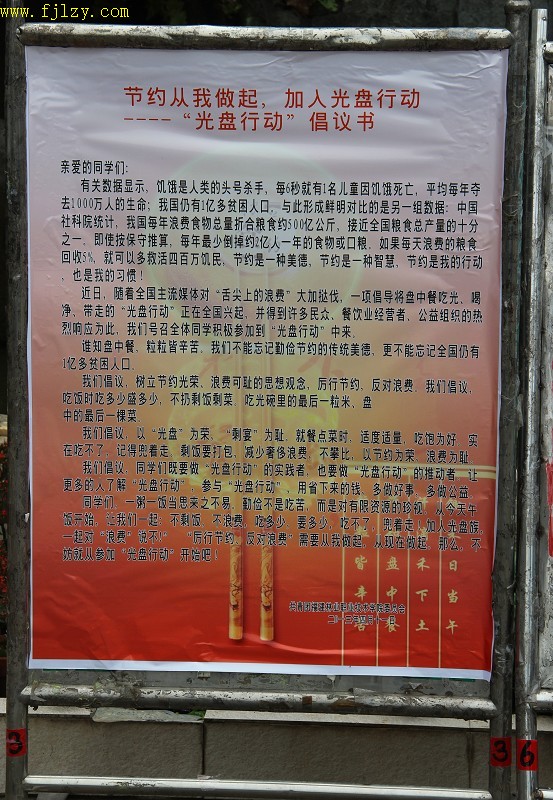 www.fjlzy.com
节约从我做起，加入光盘行动
----“光盘行动”倡议书
亲爱的同学们：
有关数据显示，饥饿是人类的头号杀手，每6秒就有1名儿童因饥饿死亡，平均每年夺
去1000万人的生命；我国仍有1亿多贫困人口，与此形成鲜明对比的是另一组数据：中国
社科院统计，我国每年浪费食物总量折合粮食约500亿公斤，接近全国粮食总产量的十分
之一，即使按保守推算，每年最少倒掉约2亿人一年的食物或口粮，如果每天浪费的粮食
回收5%，就可以多救活四百万饥民，节约是一种美德，节约是一种智慧，节约是我的行动
，也是我的习惯！
近日，随着全国主流媒体对“舌尖上的浪费”大加挞伐，一项倡导将盘中餐吃光、喝
净、带走的“光盘行动”正在全国兴起，并得到许多民众、餐饮业经营者、公益组织的热
烈响应为此，我们号召全体同学积极参加到“光盘行动”中来。
谁知盘中餐，粒粒皆辛苦。我们不能忘记勤俭节约的传统美德，更不能忘记全国仍有
1亿多贫困人口。
我们倡议，树立节约光荣、浪费可耻的思想观念，厉行节约，反对浪费。我们倡议，
吃饭时吃多少盛多少，不扔剩饭剩菜，吃光碗里的最后一粒米、盘
中的最后一棵菜。
我们倡议，以“光盘”为荣、“剩宴”为耻，就餐点菜时，适度适量，吃饱为好，实
在吃不了，记得兜着走，剩饭要打包，减少奢侈浪费，不攀比，以节约为荣，浪费为耻
我们倡议，同学们既要做“光盘行动”的实践者，也要做“光盘行动”的推动者，让
更多的人了解“光盘行动”、参与“光盘行动”，用省下来的钱，多做好事，多做公益。
同学们，一粥一饭当思来之不易，勤俭不是吃苦，而是对有限资源的珍视，从今天午
饭开始，让我们一起：不剩饭，不浪费，吃多少，要多少，吃不了，兜着走，加入光盘族，
一起对“浪费”说不!”  “厉行节约、反对浪费”需要从我做起，从现在做起，那么，不
妨就从参加“光盘行动”开始吧！
日当午
禾下土
盘中餐
皆辛苦
共青团福建林业职业技术学院委员会
二〇一三年四月十一日
3
3
6